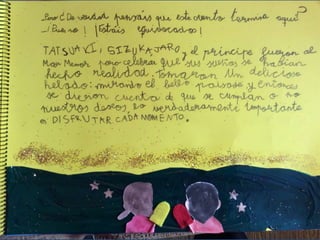 Pero ¿De verdad pensáis que este cuento termina aquí?
¡Bueno! ¡Estáis equivocados!
TATSUAKI, GIZUKAJARO y el príncipe fueron al
Mar Menor para celebrar que sus sueños se habían
hecho realidad. Tomaran un delicioso
helado: mirando el bello paisaje y entonces
se dieron cuenta de que se cumplan o no
nuestros deseos lo verdaderamente importante
es DISFRUTAR CADA MOMENTO.